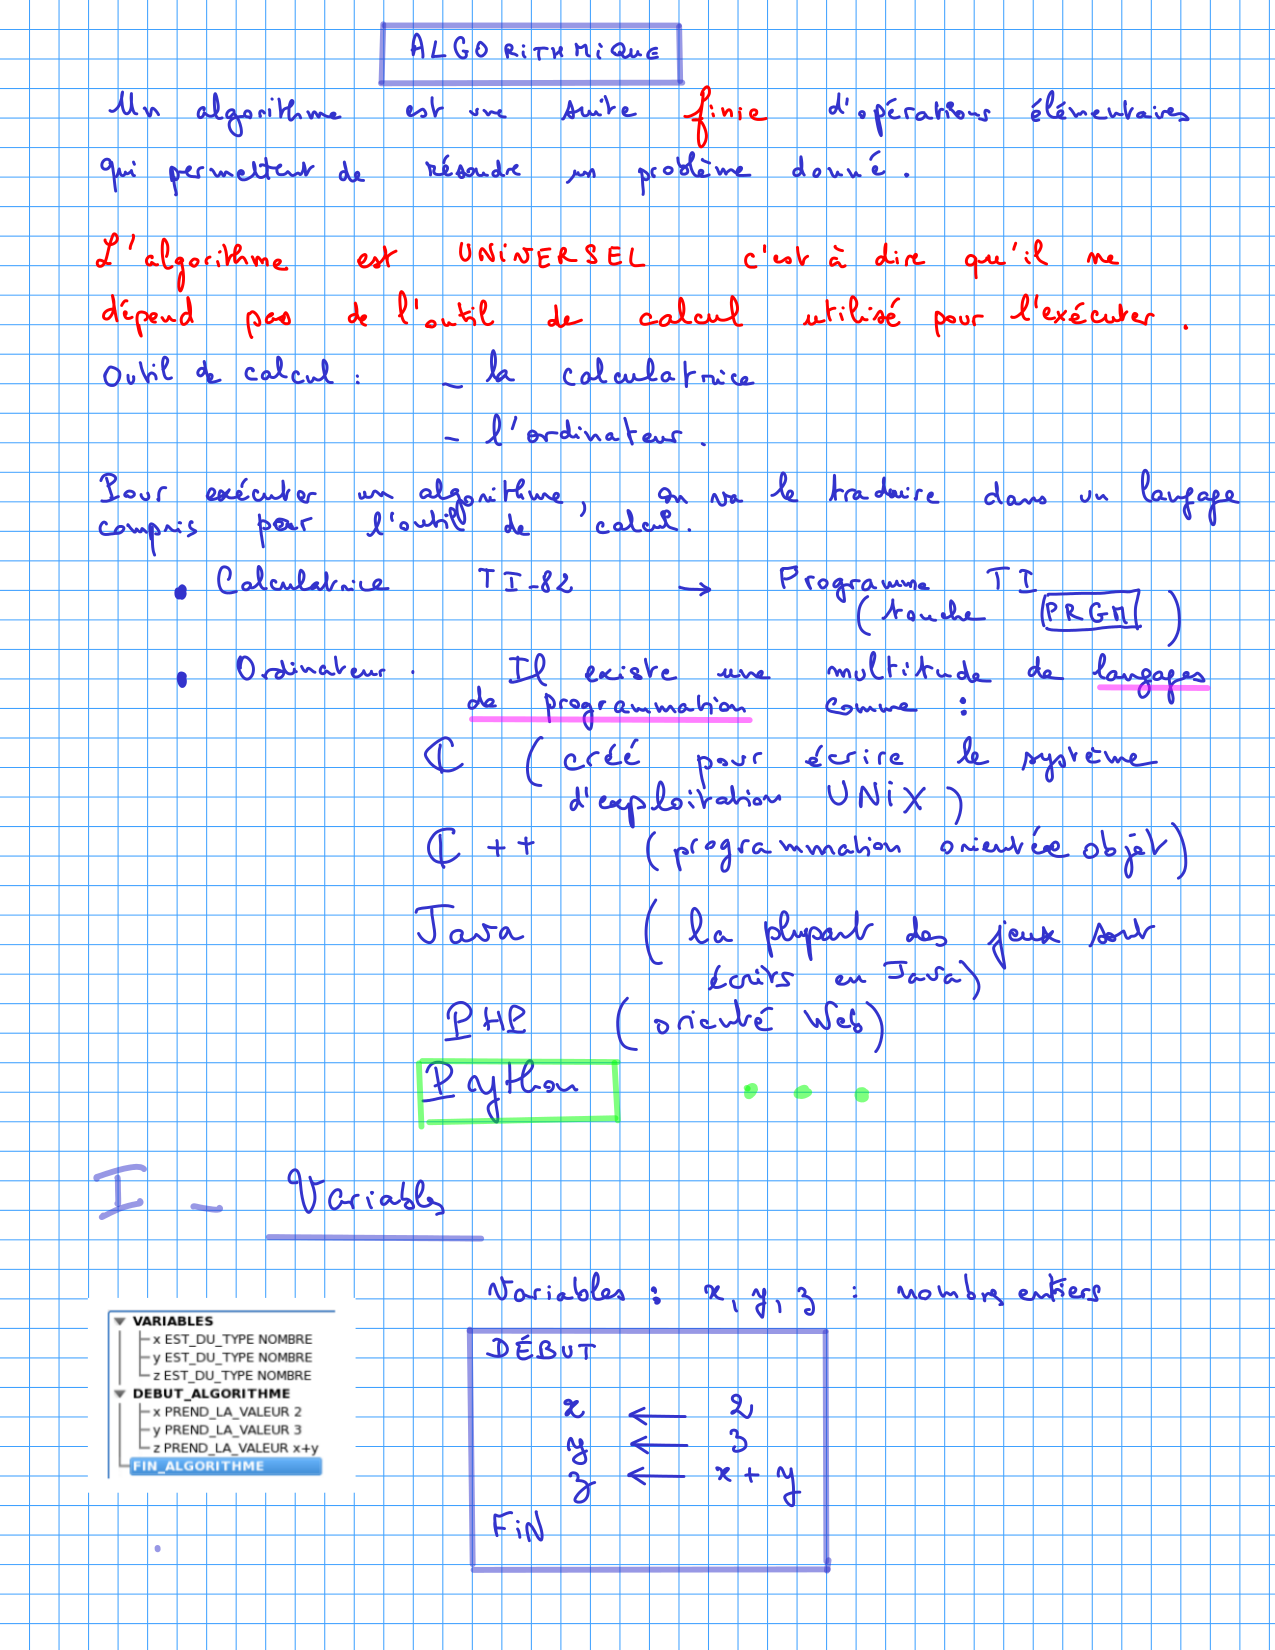 ALGORITHMIQUE
Un algorithme est une suite finie d'opérations élémentaires
qui permettent de résoudre un problème donné.
L'algorithme est UNIVERSEL c'est à dire qu'il ne
dépend pas de l'outil de calcul utilisé pour l'exécuter.
Outil de calcul : - la calculatrice
- l'ordinateur.
Pour exécuter un algorithme, on va le traduire dans un langage
compris pour l'outil de calcul.
• Calculatrice TI-82 → Programme TI
(touche PRGM)
• Ordinateur. Il existe une multitude de langages
de programmation comme :
C (créé pour écrire le système
d'exploitation UNIX)
C++ (programmation orientée objet)
Java (la plupart des jeux sont
écrits en Java)
PHP (orienté Web)
Python . . .
I - Variables
Variables : x, y, z : nombres entiers
VARIABLES
x EST_DU_TYPE NOMBRE
y EST_DU_TYPE NOMBRE
z EST_DU_TYPE NOMBRE
DEBUT_ALGORITHME
x PREND_LA_VALEUR 2
y PREND_LA_VALEUR 3
z PREND_LA_VALEUR x+y
FIN_ALGORITHME
DÉBUT
x ← 2
y ← 3
z ← x + y
FIN